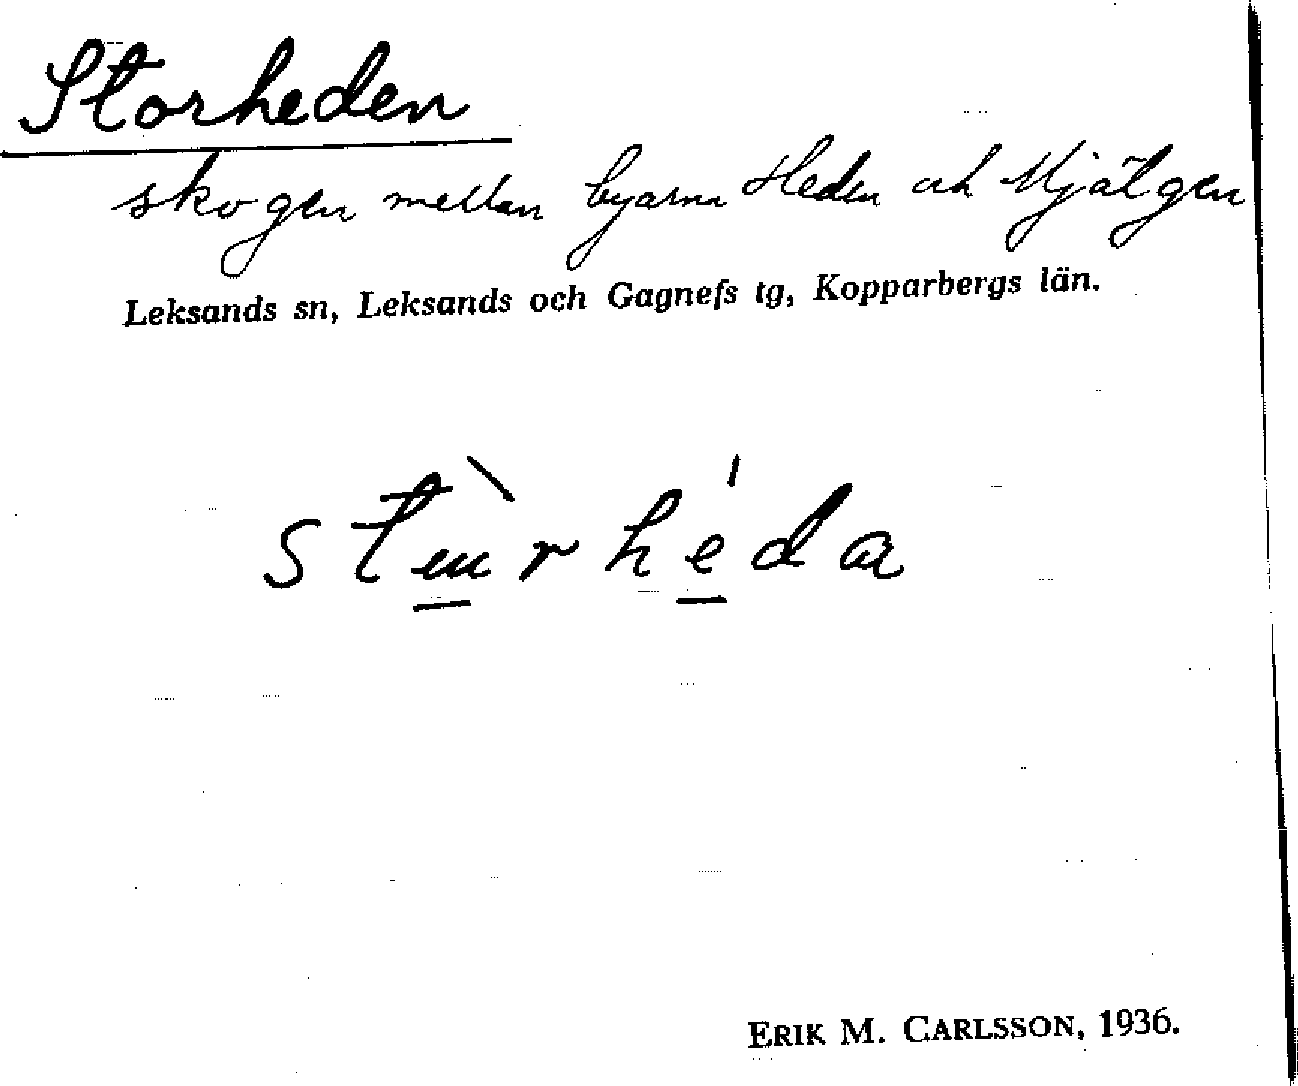 Storheden
skogen mellan byarna Heden och Mjälgen
Leksands sn, Leksands och Gagnefs tg, Kopparbergs län.
ERIK M. CARLSSON, 1936.